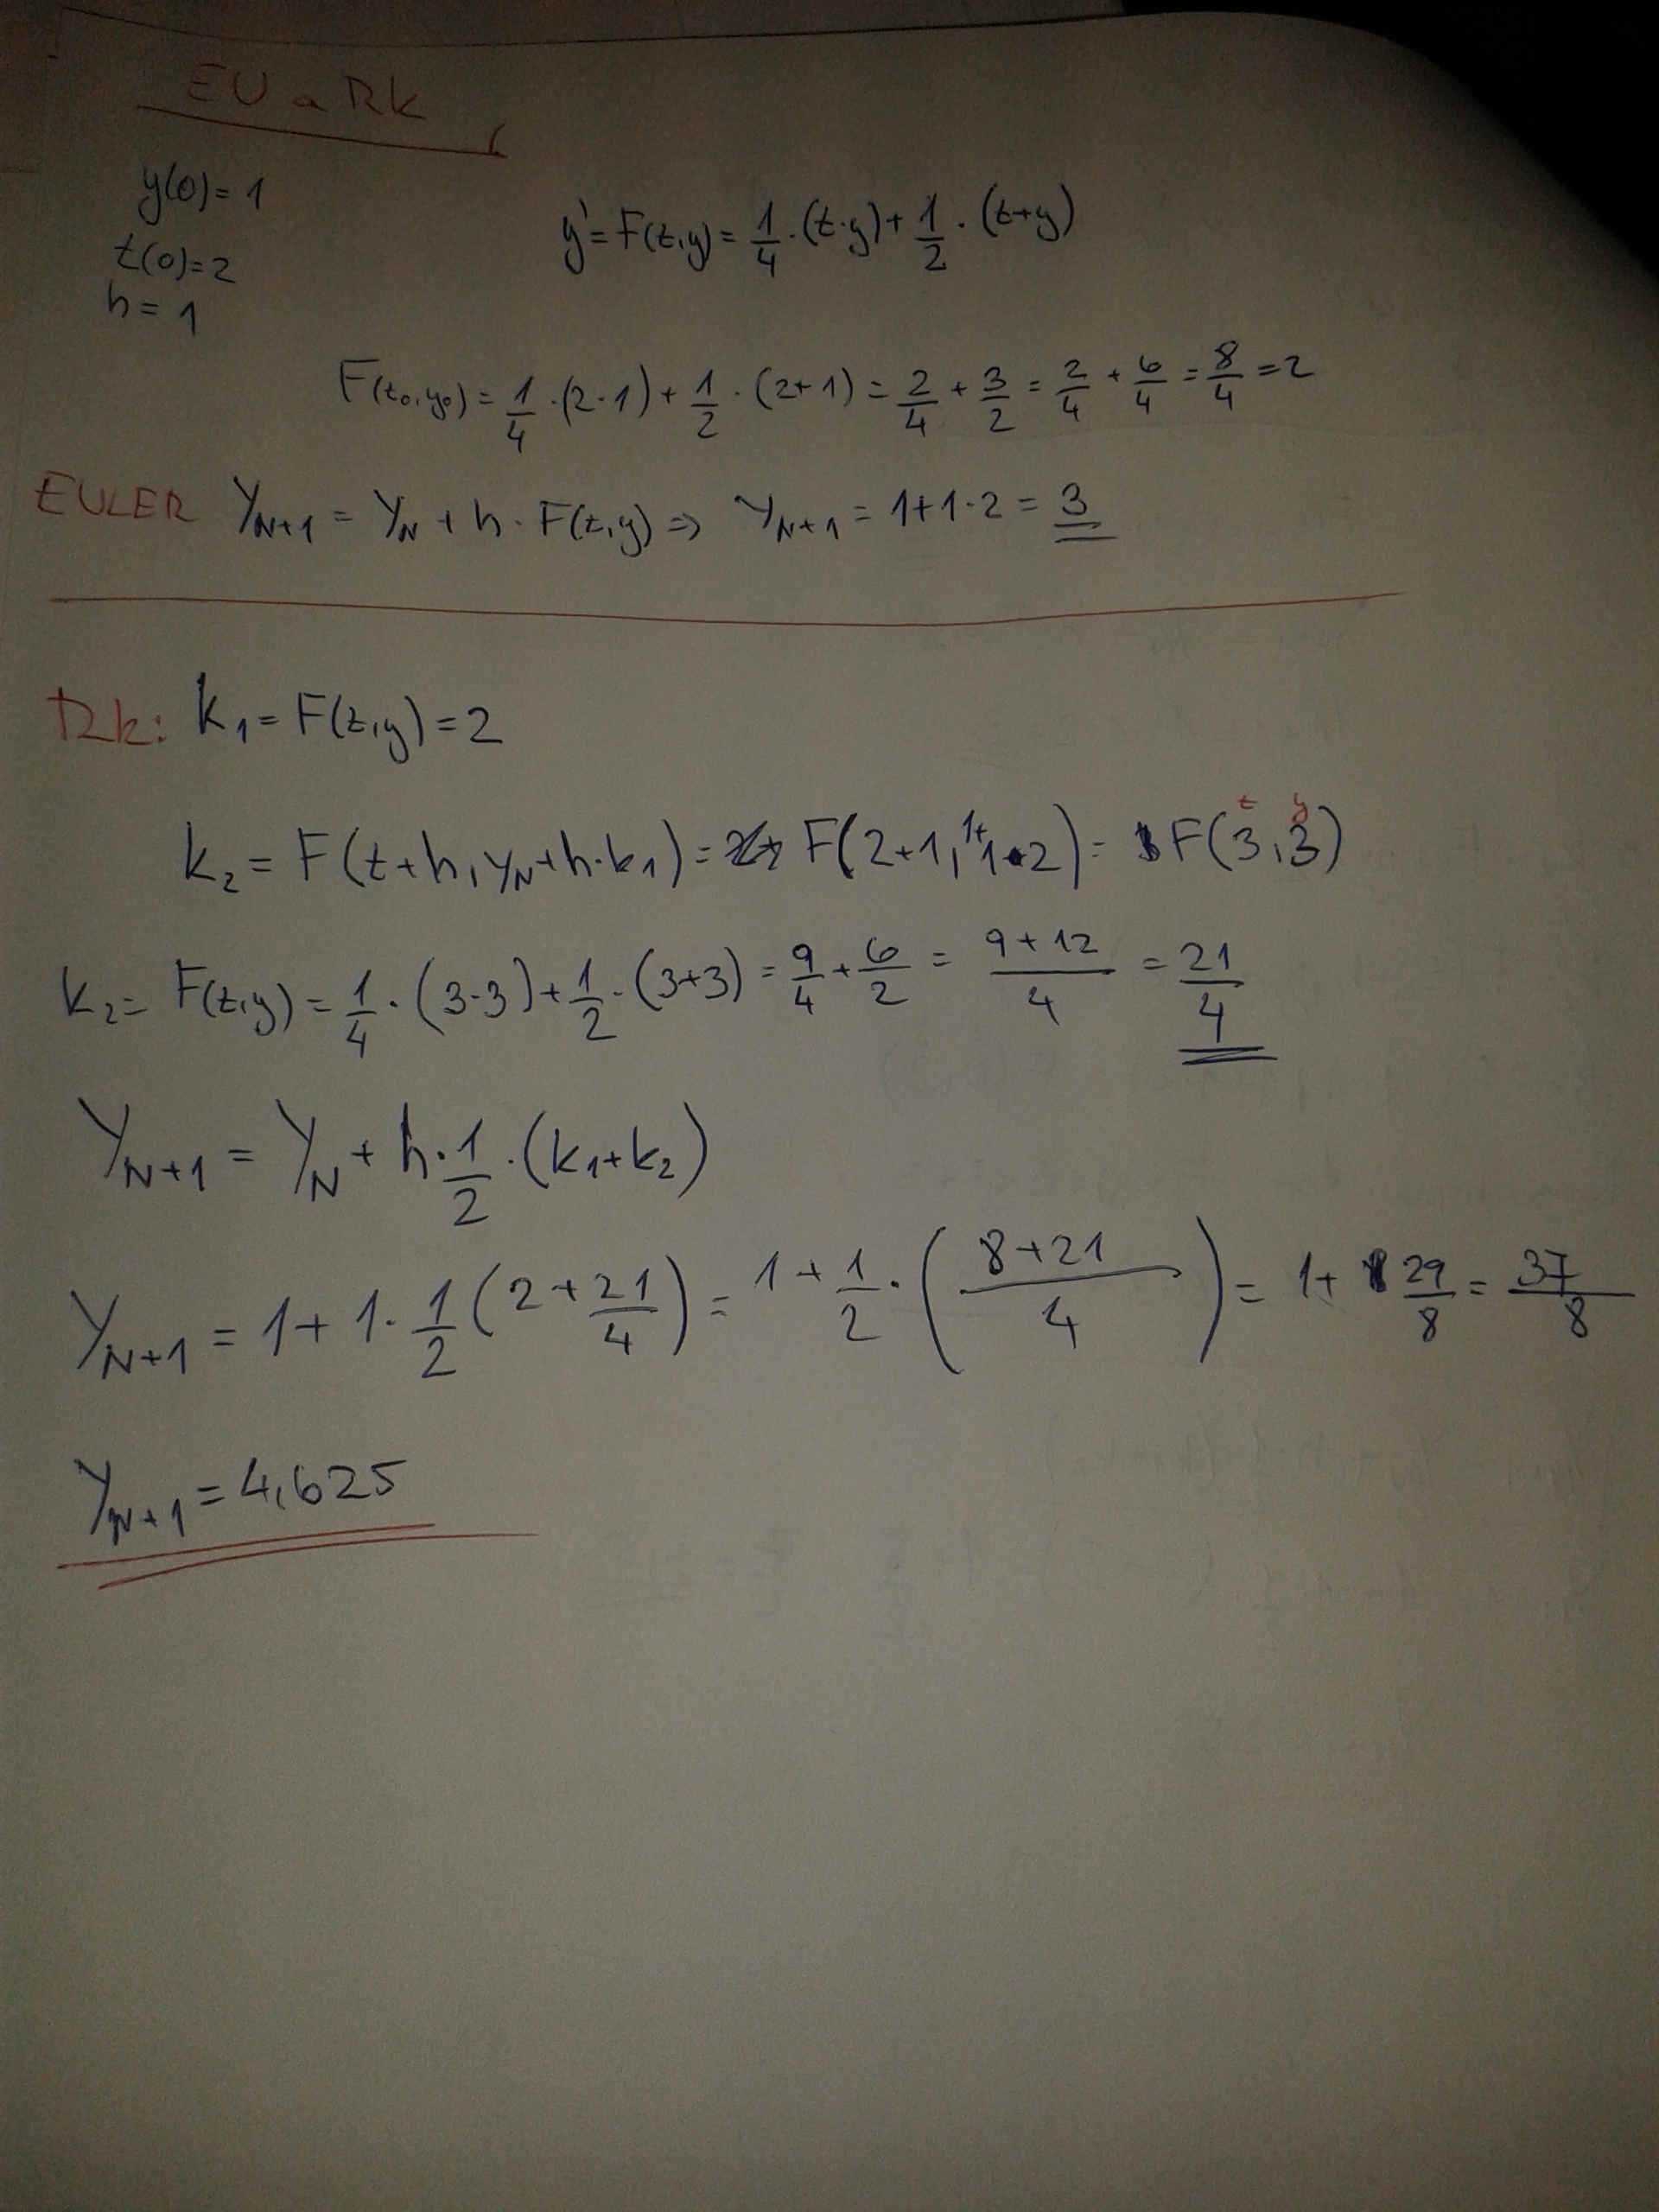 EU a RK
y(0)=1
t(0)=2
h=1
y'=F(t,y)=1/4·(t·y)+1/2·(t+y)
F(t0,y0)=1/4·(2·1)+1/2·(2+1)=2/4+3/2=2/4+6/4=8/4=2
EULER YN+1=YN+h·F(t,y)⇒ YN+1=1+1·2=3
RK: k1=F(t,y)=2
k2=F(t+h,yN+h·k1)=F(2+1,1+1·2)=F(3,3)
t y
k2=F(t,y)=1/4·(3·3)+1/2·(3+3)=9/4+6/2=9+12/4=21/4
YN+1=YN+h·1/2·(k1+k2)
YN+1=1+1·1/2(2+21/4)=1+1/2·(8+21/4)=1+29/8=37/8
YN+1=4,625